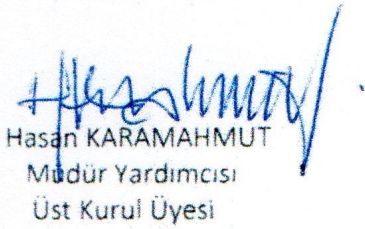 Hasan KARAMAHMUT
Müdür Yardımcısı
Üst Kurul Üyesi